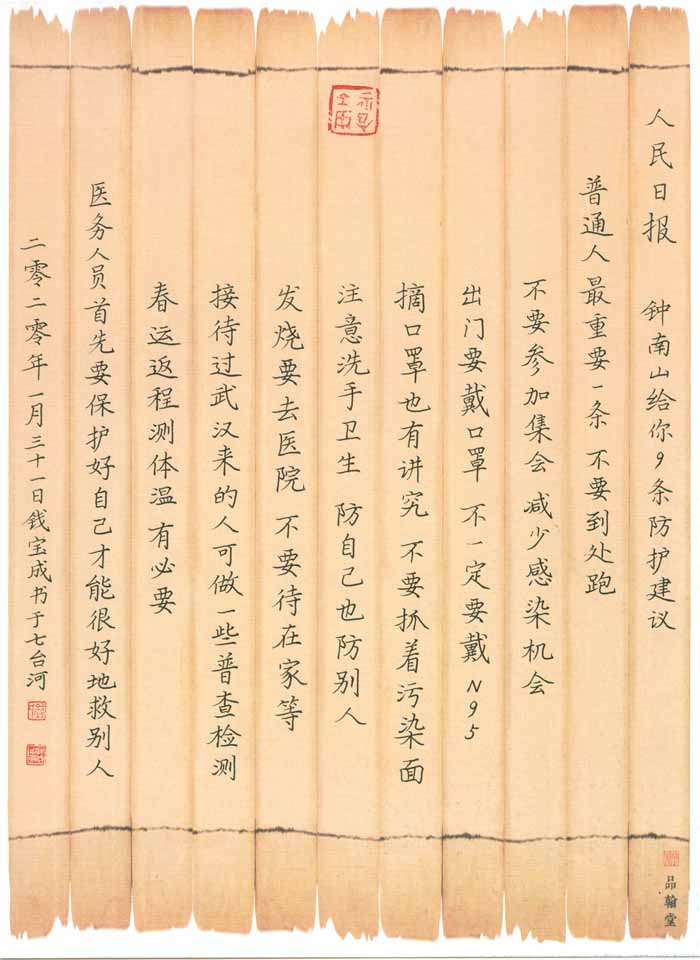 人民日报 钟南山给你9条防护建议
普通人最重要一条 不要到处跑
不要参加集会 减少感染机会
出门要戴口罩 不一定要戴N95
摘口罩也有讲究 不要抓着污染面
注意洗手卫生 防自己也防别人
发烧要去医院 不要待在家等
接待过武汉来的人可做一些普查检测
春运返程测体温有必要
医务人员首先要保护好自己才能很好地救别人
二零二零年一月三十一日钱宝成书于七台河
品翰堂